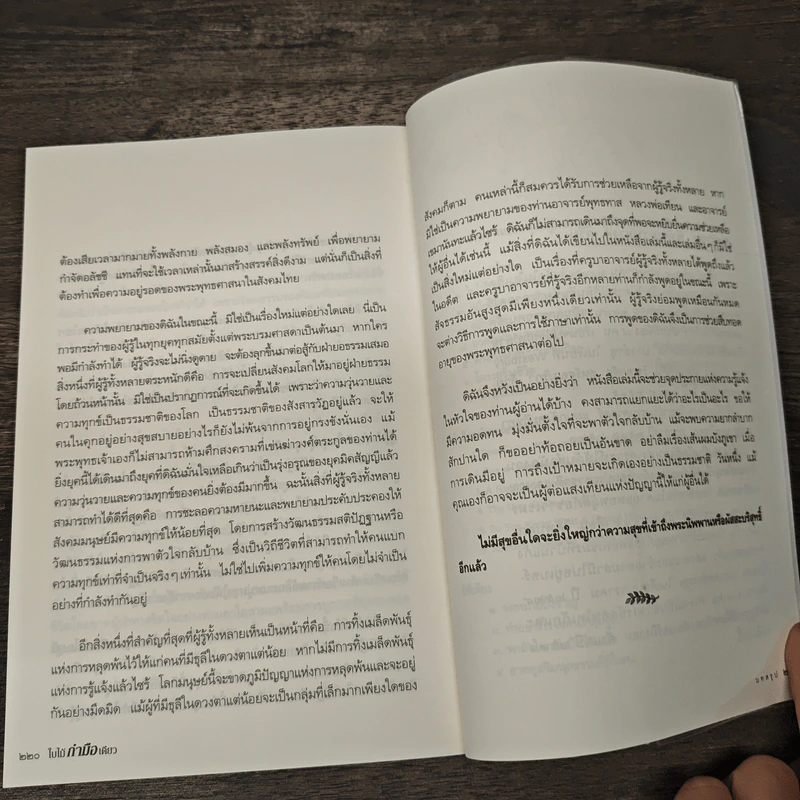 ต้องเสียเวลามากมายทั้งพลังกาย พลังสมอง และพลังทรัพย์ เพื่อพยายาม
กำจัดอลัชชี แทนที่จะใช้เวลาเหล่านั้นมาสร้างสรรค์สิ่งดีงาม แต่นั่นก็เป็นสิ่งที่
ต้องทำเพื่อความอยู่รอดของพระพุทธศาสนาในสังคมไทย
ความพยายามของดิฉันในขณะนี้ มิใช่เป็นเรื่องใหม่แต่อย่างใดเลย นี่เป็น
การกระทำของผู้รู้ในทุกยุคทุกสมัยตั้งแต่พระบรมศาสดาเป็นต้นมา หากใคร
พอมีกำลังทำได้ ผู้รู้จริงจะไม่นิ่งดูดาย จะต้องลุกขึ้นมาต่อสู้กับฝ่ายอธรรมเสมอ
สิ่งหนึ่งที่ผู้รู้ทั้งหลายตระหนักดีคือ การจะเปลี่ยนสังคมโลกให้มาอยู่ฝ่ายธรรม
โดยถ้วนหน้านั้น มิใช่เป็นปรากฏการณ์ที่จะเกิดขึ้นได้ เพราะว่าความวุ่นวายและ
ความทุกข์เป็นธรรมชาติของโลก เป็นธรรมชาติของสังสารวัฏอยู่แล้ว จะให้
คนในคุกอยู่อย่างสุขสบายอย่างไรก็ยังไม่พ้นจากการอยู่กรงขังนั่นเอง แม้
พระพุทธเจ้าเองก็ไม่สามารถห้ามศึกสงครามที่เข่นฆ่าวงศ์ตระกูลของท่านได้
ยิ่งยุคนี้ได้เดินมาถึงยุคที่ดิฉันมั่นใจเหลือเกินว่าเป็นรุ่งอรุณของยุคมิคสัญญีแล้ว
ความวุ่นวายและความทุกข์ของคนยิ่งต้องมีมากขึ้น ฉะนั้นสิ่งที่ผู้รู้จริงทั้งหลาย
สามารถทำได้ดีที่สุดคือ การชะลอความหายนะและพยายามประคับประคองให้
สังคมมนุษย์มีความทุกข์ให้น้อยที่สุด โดยการสร้างวัฒนธรรมสติปัฏฐานหรือ
วัฒนธรรมแห่งการพาตัวใจกลับบ้าน ซึ่งเป็นวิถีชีวิตที่สามารถทำให้คนแบก
ความทุกข์เท่าที่จำเป็นจริงๆเท่านั้น ไม่ใช่ไปเพิ่มความทุกข์ให้คนโดยไม่จำเป็น
อย่างที่กำลังทำกันอยู่
อีกสิ่งหนึ่งที่สำคัญที่สุดที่ผู้รู้ทั้งหลายเห็นเป็นหน้าที่คือ การทิ้งเมล็ดพันธุ์
แห่งการหลุดพ้นไว้ให้แก่คนที่มีธุลีในดวงตาแต่น้อย หากไม่มีการทิ้งเมล็ดพันธุ์
แห่งการรู้แจ้งแล้วไซร้ โลกมนุษย์นี้จะขาดภูมิปัญญาแห่งการหลุดพ้นและจะอยู่
กันอย่างมืดมิด แม้ผู้ที่มีธุลีในดวงตาแต่น้อยจะเป็นกลุ่มที่เล็กมากเพียงใดของ
๒๒๐ ใบไม้กำมือเดียว
สังคมก็ตาม คนเหล่านี้ก็สมควรได้รับการช่วยเหลือจากผู้รู้จริงทั้งหลาย หาก
มิใช่เป็นความพยายามของท่านอาจารย์พุทธทาส หลวงพ่อเทียน และอาจารย์
เขมานันทะแล้วไซร้ ดิฉันก็ไม่สามารถเดินมาถึงจุดที่พอจะหยิบยื่นความช่วยเหลือ
ให้ผู้อื่นได้เช่นนี้ แม้สิ่งที่ดิฉันได้เขียนไปในหนังสือเล่มนี้และเล่มอื่นๆก็มิใช่
เป็นสิ่งใหม่แต่อย่างใด เป็นเรื่องที่ครูบาอาจารย์ผู้รู้จริงทั้งหลายได้พูดถึงแล้ว
ในอดีต และครูบาอาจารย์ที่รู้จริงอีกหลายท่านก็กำลังพูดอยู่ในขณะนี้ เพราะ
สัจธรรมอันสูงสุดมีเพียงหนึ่งเดียวเท่านั้น ผู้รู้จริงย่อมพูดเหมือนกันหมด
จะต่างวิธีการพูดและการใช้ภาษาเท่านั้น การพูดของดิฉันจึงเป็นการช่วยสืบทอด
อายุของพระพุทธศาสนาต่อไป
ดิฉันจึงหวังเป็นอย่างยิ่งว่า หนังสือเล่มนี้จะช่วยจุดประกายแห่งความรู้แจ้ง
ในหัวใจของท่านผู้อ่านได้บ้าง คงสามารถแยกแยะได้ว่าอะไรเป็นอะไร ขอให้
มีความอดทน มุ่งมั่นตั้งใจที่จะพาตัวใจกลับบ้าน แม้จะพบความยากลำบาก
สักปานใด ก็ขออย่าท้อถอยเป็นอันขาด อย่าลืมเรื่องเส้นผมบังภูเขา เมื่อ
การเดินมีอยู่ การถึงเป้าหมายจะเกิดเองอย่างเป็นธรรมชาติ วันหนึ่ง แม้
คุณเองก็อาจจะเป็นผู้ต่อแสงเทียนแห่งปัญญานี้ให้แก่ผู้อื่นได้
ไม่มีสุขอื่นใดจะยิ่งใหญ่กว่าความสุขที่เข้าถึงพระนิพพานหรือผัสสะบริสุทธิ์
อีกแล้ว
บทสรุป